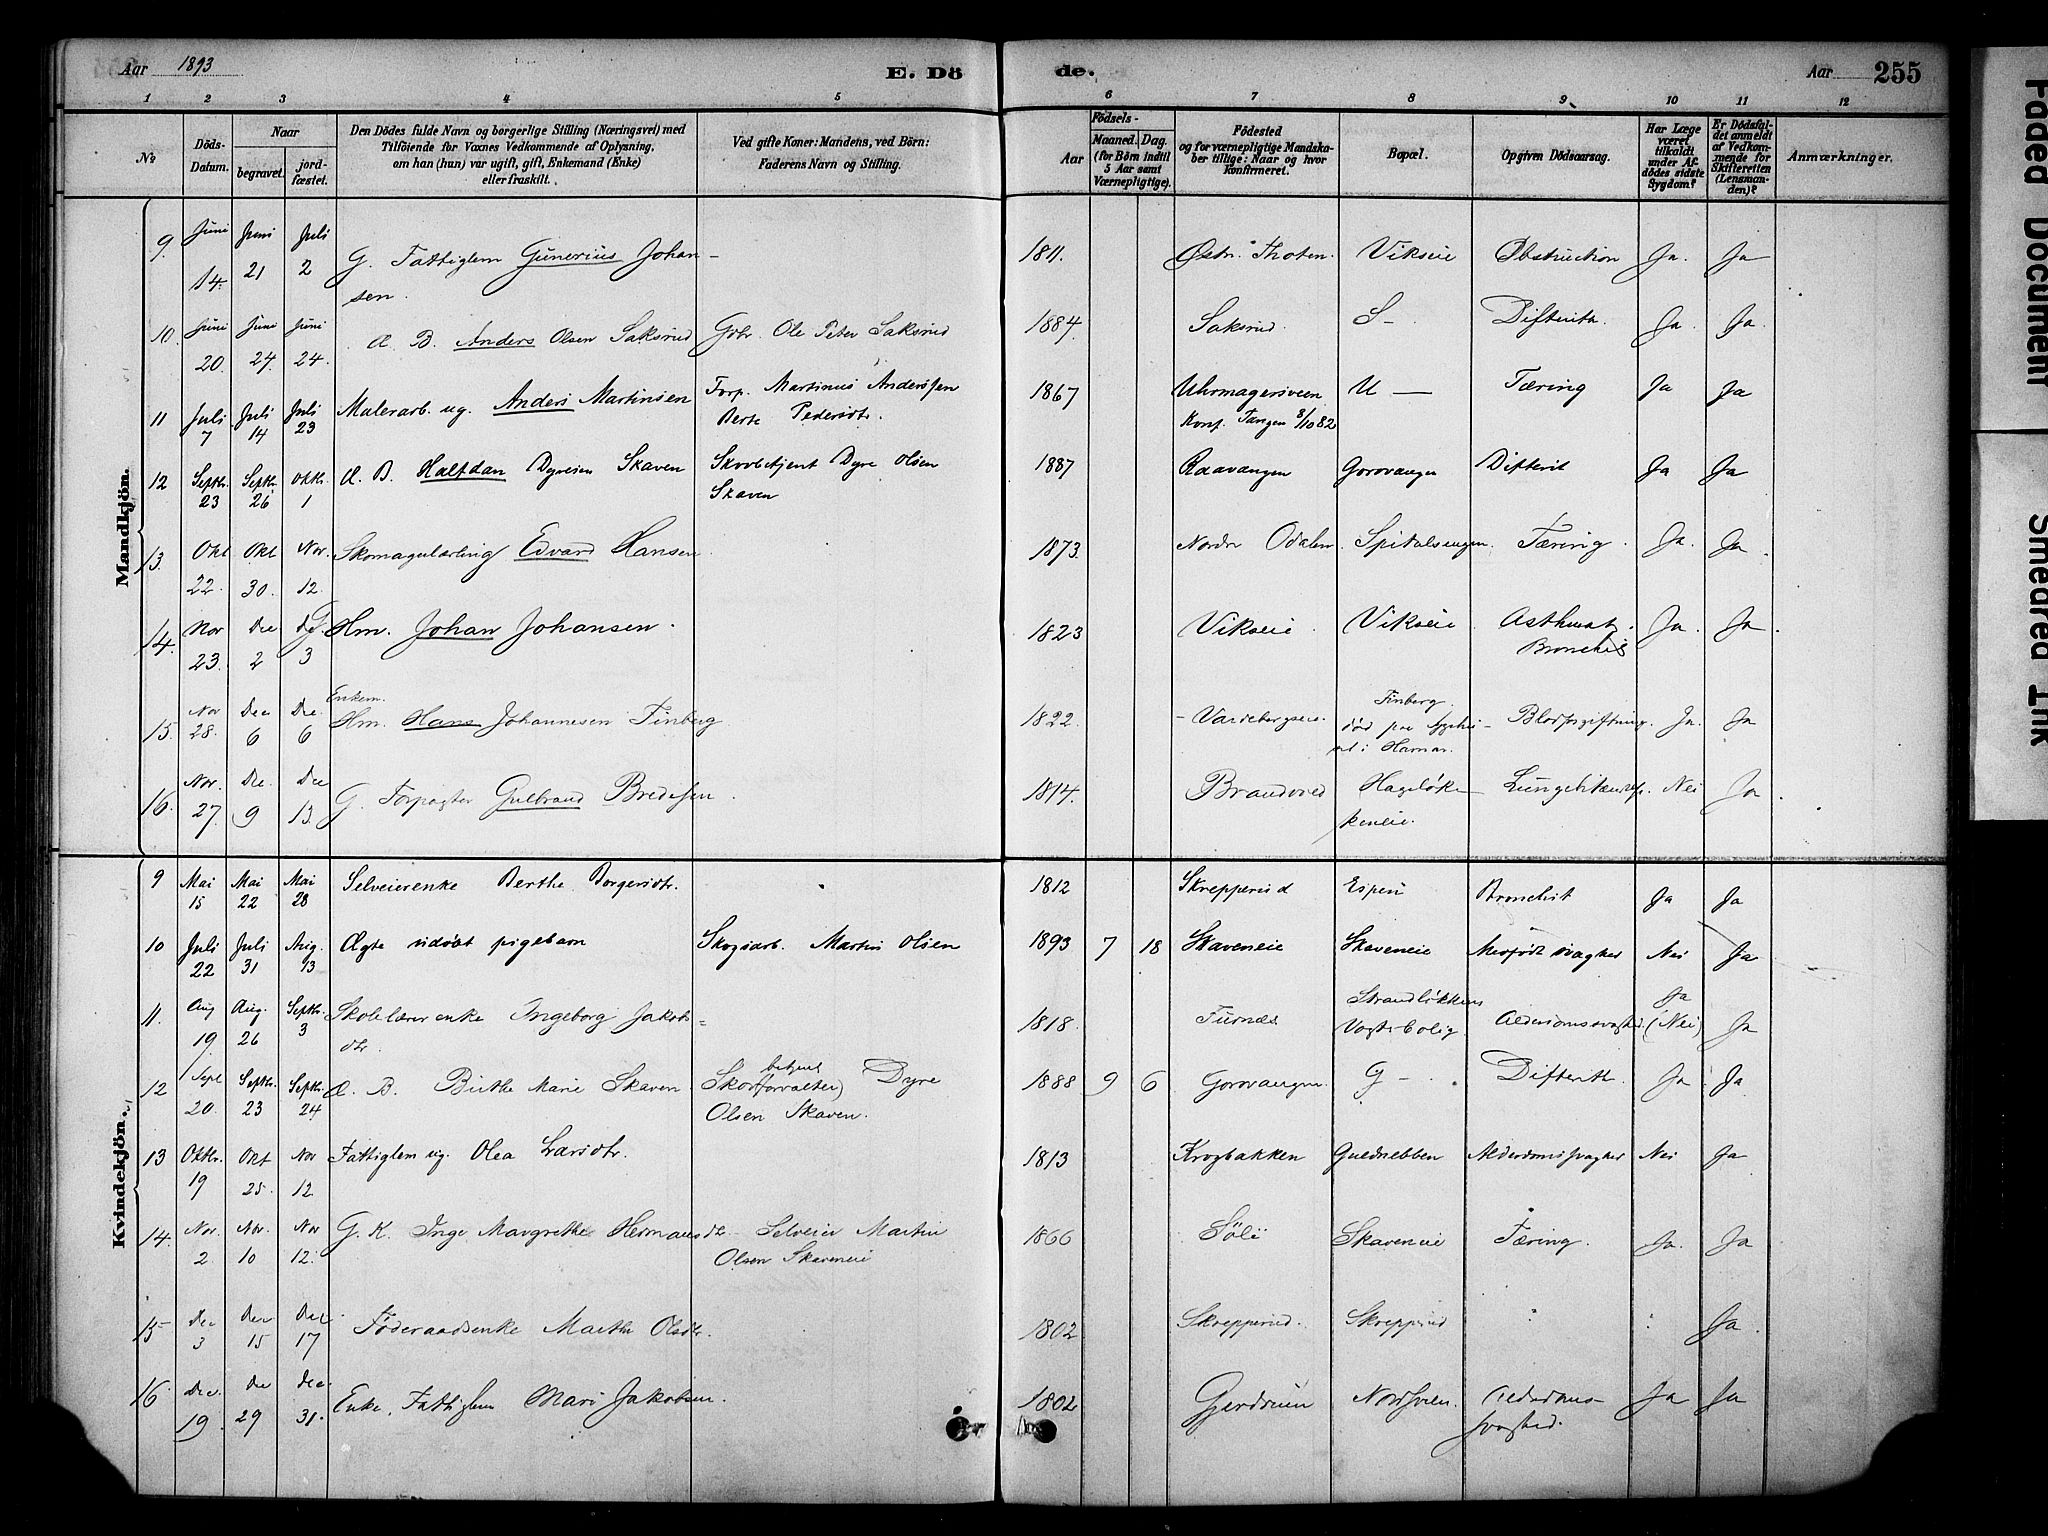 Aar 1893 E. Dö de. Aar 255
1 2 3 4 5 6 7 8 9 10 11 12
No
Döds-Datum.
Naar
begravet.
jord-fæstet.
Den Dödes fulde Navn og borgerlige Stilling (Næringsvei) med
Tilföiende for Voxnes Vedkommende af Oplysning,
om han (hun) var ugift, gift, Enkemand (Enke)
eller fraskilt.
Ved gifte Koner: Mandens, ved Börn:
Faderens Navn og Stilling.
Födsels-
Aar
Maaned. Dag.
(for Börn indtil
5 Aar samt
Værnepligtige).
Födested
og for værnepligtige Mandska-
ber tillige: Naar og hvor
konfirmeret.
Bopæl.
Opgiven Dödsaarsag.
Har Læge
været
tilkaldt
under Af-
dödes sidste
Sygdom?
Er Dödsfal-
det anmeldt
af Vedkom-
mende for
Skifteretten
(Lensman-
den)?
Anmærkninger.
Mandkjön.
9. Juni 14. Juni 21 Juli 2 G. Fattiglem Gunerius Johan- 1811. Østr. Thoten. Vikseie Obstruction Ja. Ja
sen.
10. Juni 20. Juni 24. Juni 24. Æ. B. Anders Olsen Saksrud Gbr. Ole Peter Saksrud 1884. Saksrud. S- Difterith. Ja. Ja.
11 Juli 7 Juli 14 Juli 23 Malerarb. ug. Anders Martinsen Forp. Martinus Anderssen 1867 Uhrmagersveen U — Tæring Ja Ja
Berte Pedersdtr. Konf. Tangen 8/10 82
12 Septbr. 23 Septbr. 26 Oktbr. 1 Æ. B. Halfdan Dyresen Skaven Skovbetjent Dyre Olsen 1887 Raavangen Gorovangen Difterit Ja Ja
Skaven
13. Okt 22. Okt 30. Nov. 12. Skomagerlærling Edvard Hansen 1873. Nordre Odalen Spitalsengen. Tæring. Ja. Ja.
14. Nov 23. Dec 2 Dec 3 Hm. Johan Johansen. 1823 Vikseie. Vikseie. Asthmat. Ja. Ja.
Bronchit
Enkem.
15. Nov 28. Dec 6 Dec. 6 Hm. Hans Johannesen Finberg 1822. Finberg. Blodforgiftning. Ja. Ja
død paa
i Hamar.
16. Nov. 27. Dec. 9 Dec 13. G. Forpagter Gulbrand Bredesen. 1814. Brandvold Hageløk- Nei Ja.
keneie.
Kvindekjön.
9 Mai 15 Mai 22 Mai 28 Selveierenke Berthe Borgersdtr. 1812 Skrepperud Espeu Bronchit Ja Ja
10 Juli 22 Juli 31 Aug. 13 Ægte udøbt pigebarn Skogsarb. Martin Olsen 1893 7 18 Skaveneie Skaveneie Medfødt svaghed Nei Ja
11. Aug 19 Aug. 26 Septbr. 3 Skolelærerenke Ingeborg Jakobs- 1818. Furnæs Strandløkkens Alderdomssvaghed. Ja (Nei) Ja
dtr. Vogterbolig
12 Sept 20. Septbr. 23 Septbr. 24 Æ. B. Birthe Marie Skaven. Skov(forvalter) betjent Dyre 1888 9 6 Gorovangen. G-. Difterith. Ja. Ja.
Olsen Skaven.
13 Oktbr. 19 Okt 25. Nov 12 Fattiglem ug. Olea Larsdtr. 1813 Krogbakken Guldnebben Alderdomssvaghed Nei Ja
14. Nov. 2. Nov. 10 Nov 12. G. K. Inge Margrethe Hermansdtr. Selveier Martin 1866 Søli Skaveneie Tæring. Ja. Ja
Olsen Skaveneie
15 Dec 3 Dec 15 Dec 17 Føderaadsenke Marthe Olsdtr. 1802 Skrepperud. Skrepperud " " Ja.
16. Dec. 19. Dec 29 Dec 31. Enke, Fattiglem Mari Jakobsen. 1802 Gjerdrum Nordsveen. Alderdoms- Ja Ja
svaghed.
Faded Document
Smeared Ink